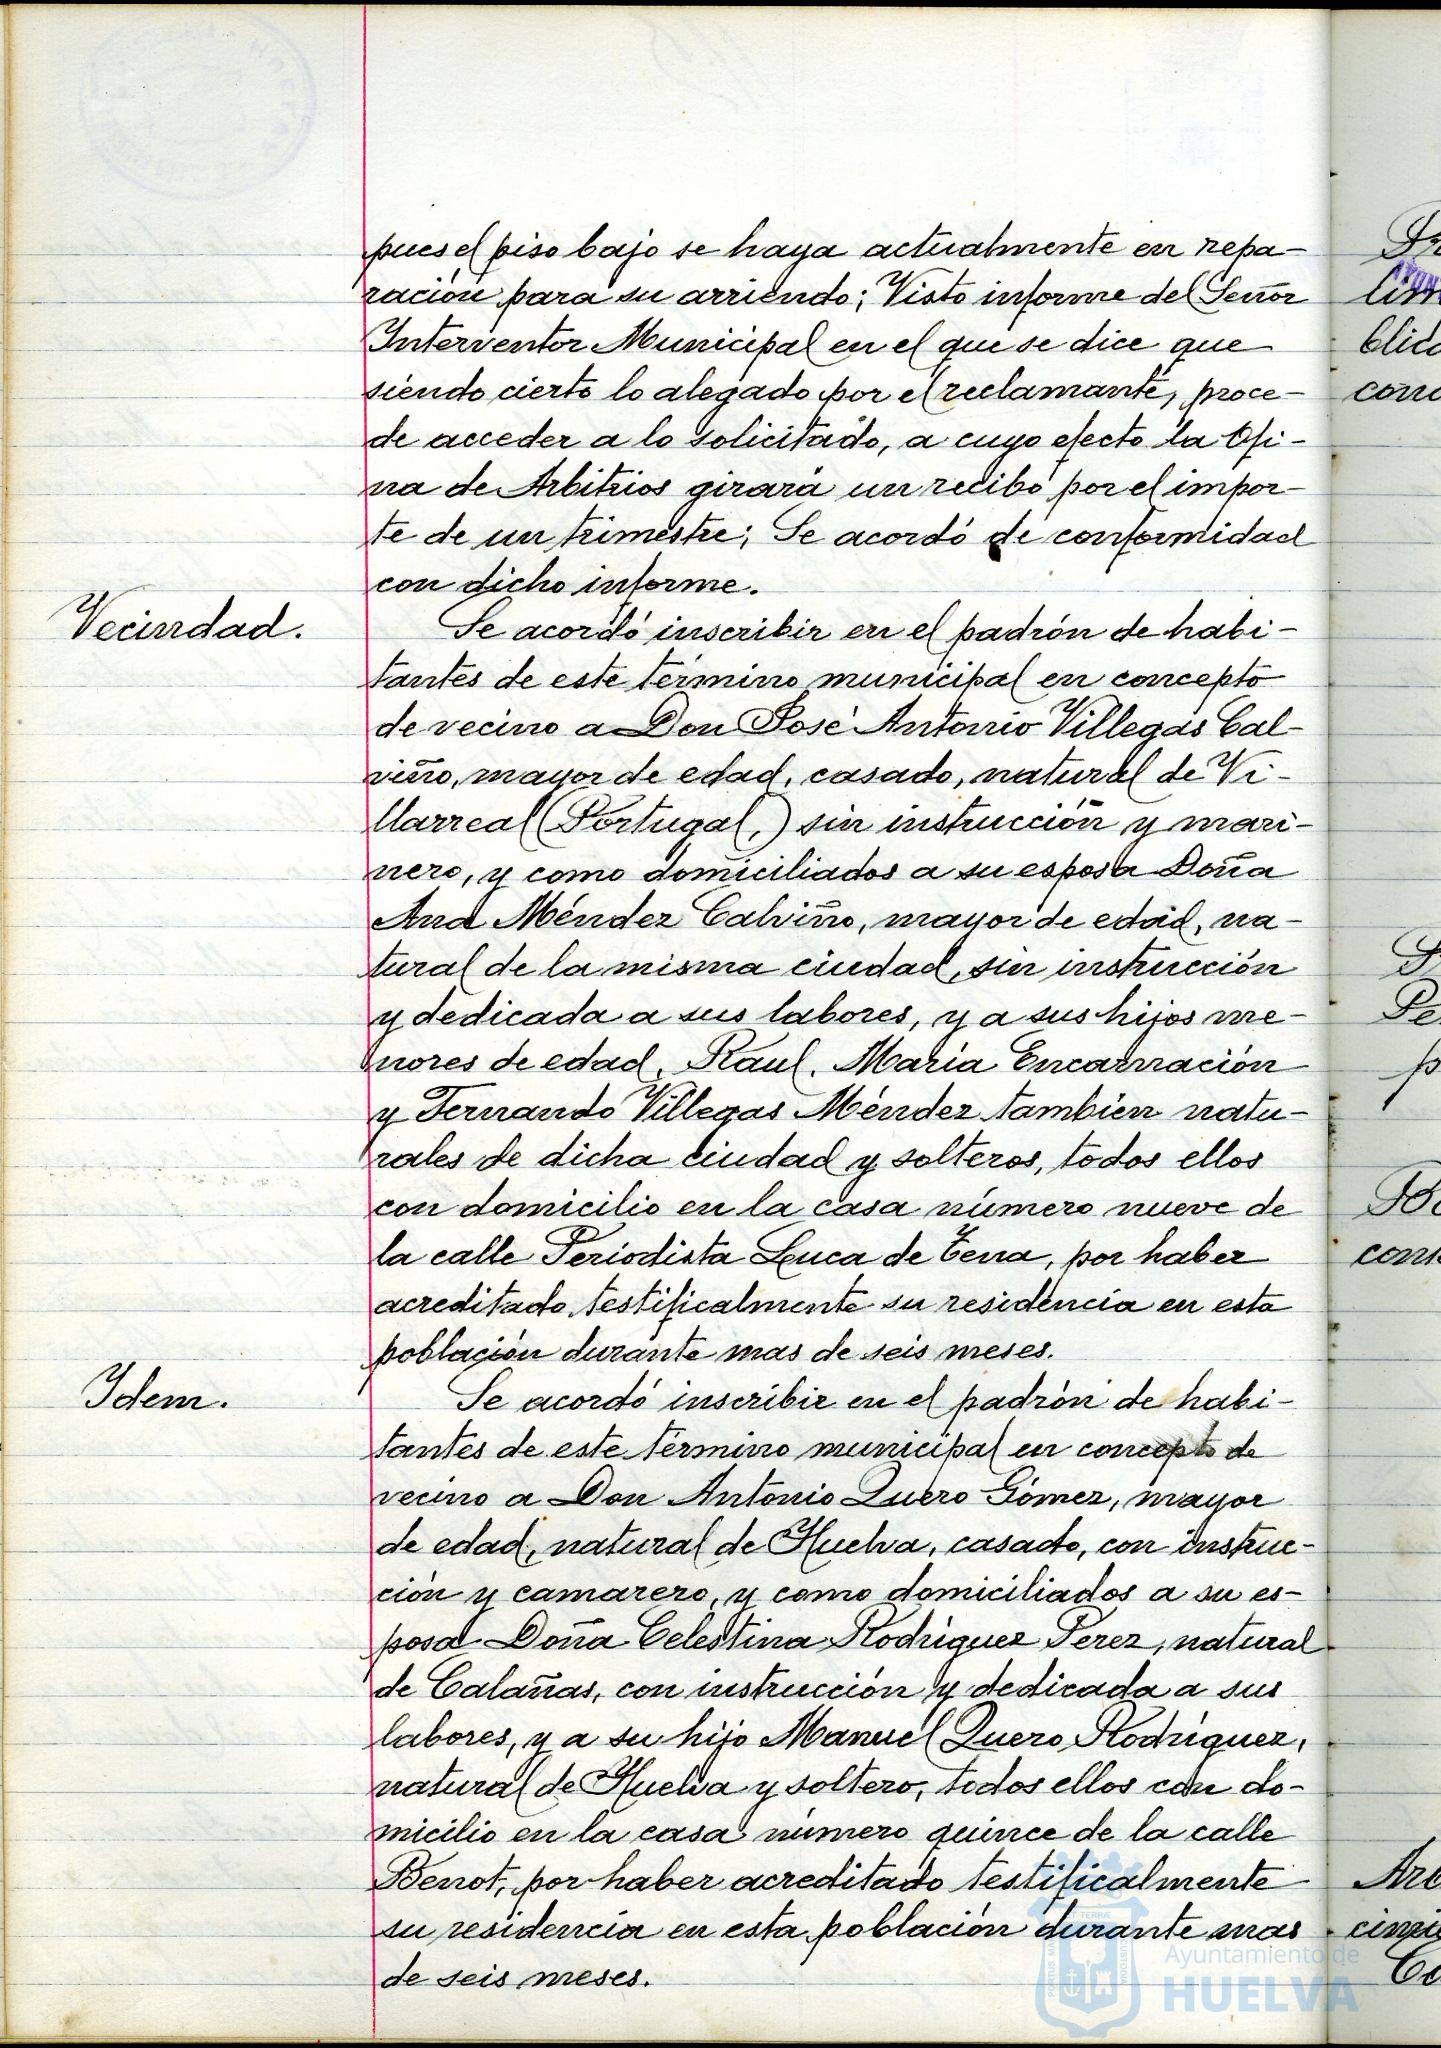 pues el piso bajo se haya actualmente en repa-
ración para su arriendo; Visto informe del Señor
Interventor Municipal en el que se dice que
siendo cierto lo alegado por el reclamante, proce-
de acceder a lo solicitado, a cuyo efecto la Ofi-
na de Arbitrios girará un recibo por el impor-
te de un trimestre; Se acordó de conformidad
con dicho informe.
Vecindad.
Se acordó inscribir en el padrón de habi-
tantes de este término municipal en concepto
de vecino a Don José Antonio Villegas Cal-
viño, mayor de edad, casado, natural de Vi-
llarreal (Portugal,) sin instrucción y mari-
nero, y como domiciliados a su esposa Doña
Ana Méndez Calviño, mayor de edad, na-
tural de la misma ciudad, sin instrucción
y dedicada a sus labores, y a sus hijos me-
nores de edad, Raul, María Encarnación
y Fernando Villegas Méndez también natu-
rales de dicha ciudad y solteros, todos ellos
con domicilio en la casa número nueve de
la calle Periodista Luca de Tena, por haber
acreditado testificalmente su residencia en esta
población durante mas de seis meses.
Idem.
Se acordó inscribir en el padrón de habi-
tantes de este término municipal en concepto de
vecino a Don Antonio Quero Gómez, mayor
de edad, natural de Huelva, casado, con instruc-
ción y camarero, y como domiciliados a su es-
posa Doña Celestina Rodríguez Perez, natural
de Calañas, con instrucción y dedicada a sus
labores, y a su hijo Manuel Quero Rodríguez,
natural de Huelva y soltero, todos ellos con do-
micilio en la casa número quince de la calle
Benot, por haber acreditado testificalmente
su residencia en esta población durante mas
de seis meses.
Ayuntamiento de
HUELVA